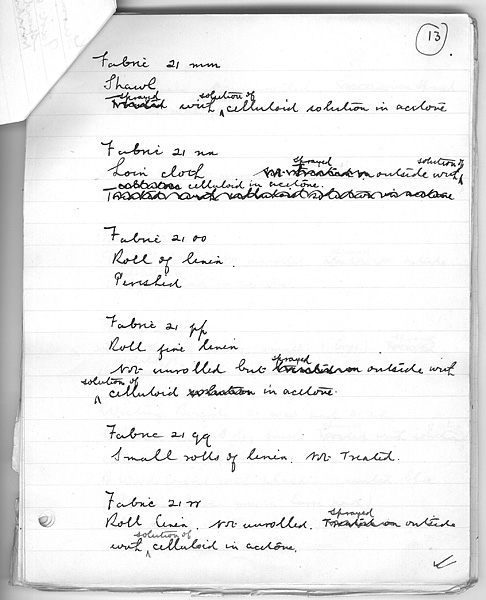 13.
Fabric 21 mm
Shawl
sprayed solution of
Treated with celluloid solution in acetone
Fabric 21 nn
sprayed solution of
Loin cloth Not treated on outside with
celluloid in acetone.
Treated with celluloid solution in acetone
Fabric 21 oo
Roll of linin.
Perished
Fabric 21 pp
Roll fine linin
sprayed
Not unrolled but treated on outside with
solution of
celluloid solution in acetone.
Fabric 21 qq
Small rolls of linin. Not Treated.
Fabric 21 rr
sprayed
Roll linin. Not unrolled. Treated on outside
solution of
with celluloid in acetone.